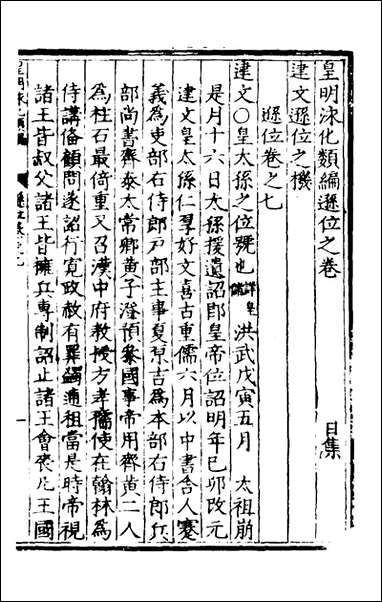 皇明泳化類編遜位之卷 日集
建文遜位之機
遜位卷之七
建文○皇太孫之位號也 洪武戊寅五月 太祖崩
是月十六日太孫援遺詔即皇帝位詔明年己卯改元
建文皇太孫仁孚好文喜古重儒六月以中書舍人蹇
義為吏部右侍郎戶部主事夏原吉為本部右侍郎兵
部尚書齊泰太常卿黃子澄預參國事帝用齊黃二人
為柱石最倚重又召漢中府教授方孝孺使在翰林為
侍講備顧問遂詔行寬政赦有罪蠲逋租當是時帝視
諸王皆叔父諸王皆擁兵專制詔止諸王會喪凡王國